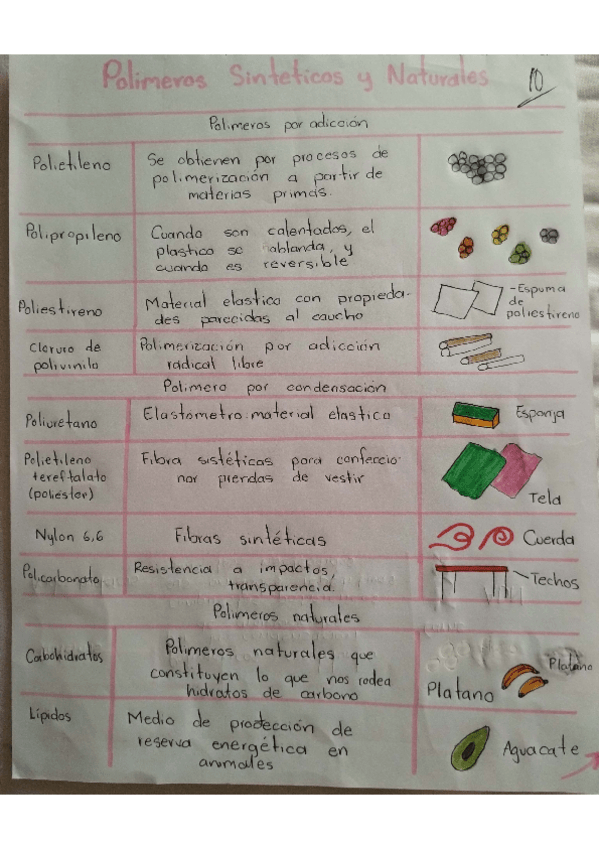 Polimeros Sinteticos y Naturales
10
Polimeros por adicción
Polietileno
Se obtienen por procesos de
polimerización a partir de
materias primas.
Polipropileno
Cuando son calentados, el
plastico se ablanda, y
cuando es reversible
Poliestireno
Material elastico con propieda-
des parecidas al caucho
-Espuma
de
poliestireno
Cloruro de
polivinilo
Polimerización por adicción
radical libre
Polimero por condensación
Poliuretano
Elastometro: material elastico
Esponja
Polietileno
tereftalato
(poliéster)
Fibra sistéticas para confeccio-
nar prendas de vestir
Tela
Nylon 6,6
Fibras sintéticas
Cuerda
Policarbonato
Resistencia a impactos,
transparencia.
Techos
Polimeros naturales
Carbohidratos
Polimeros naturales que
constituyen lo que nos rodea
hidratos de carbono
Platano
Platano
Lípidos
Medio de protección de
reserva energética en
animales
Aguacate